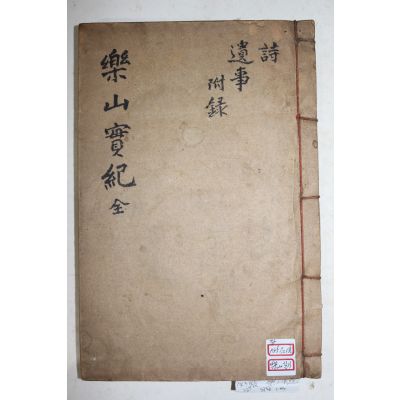 詩
遺事
附録
樂山實紀 全